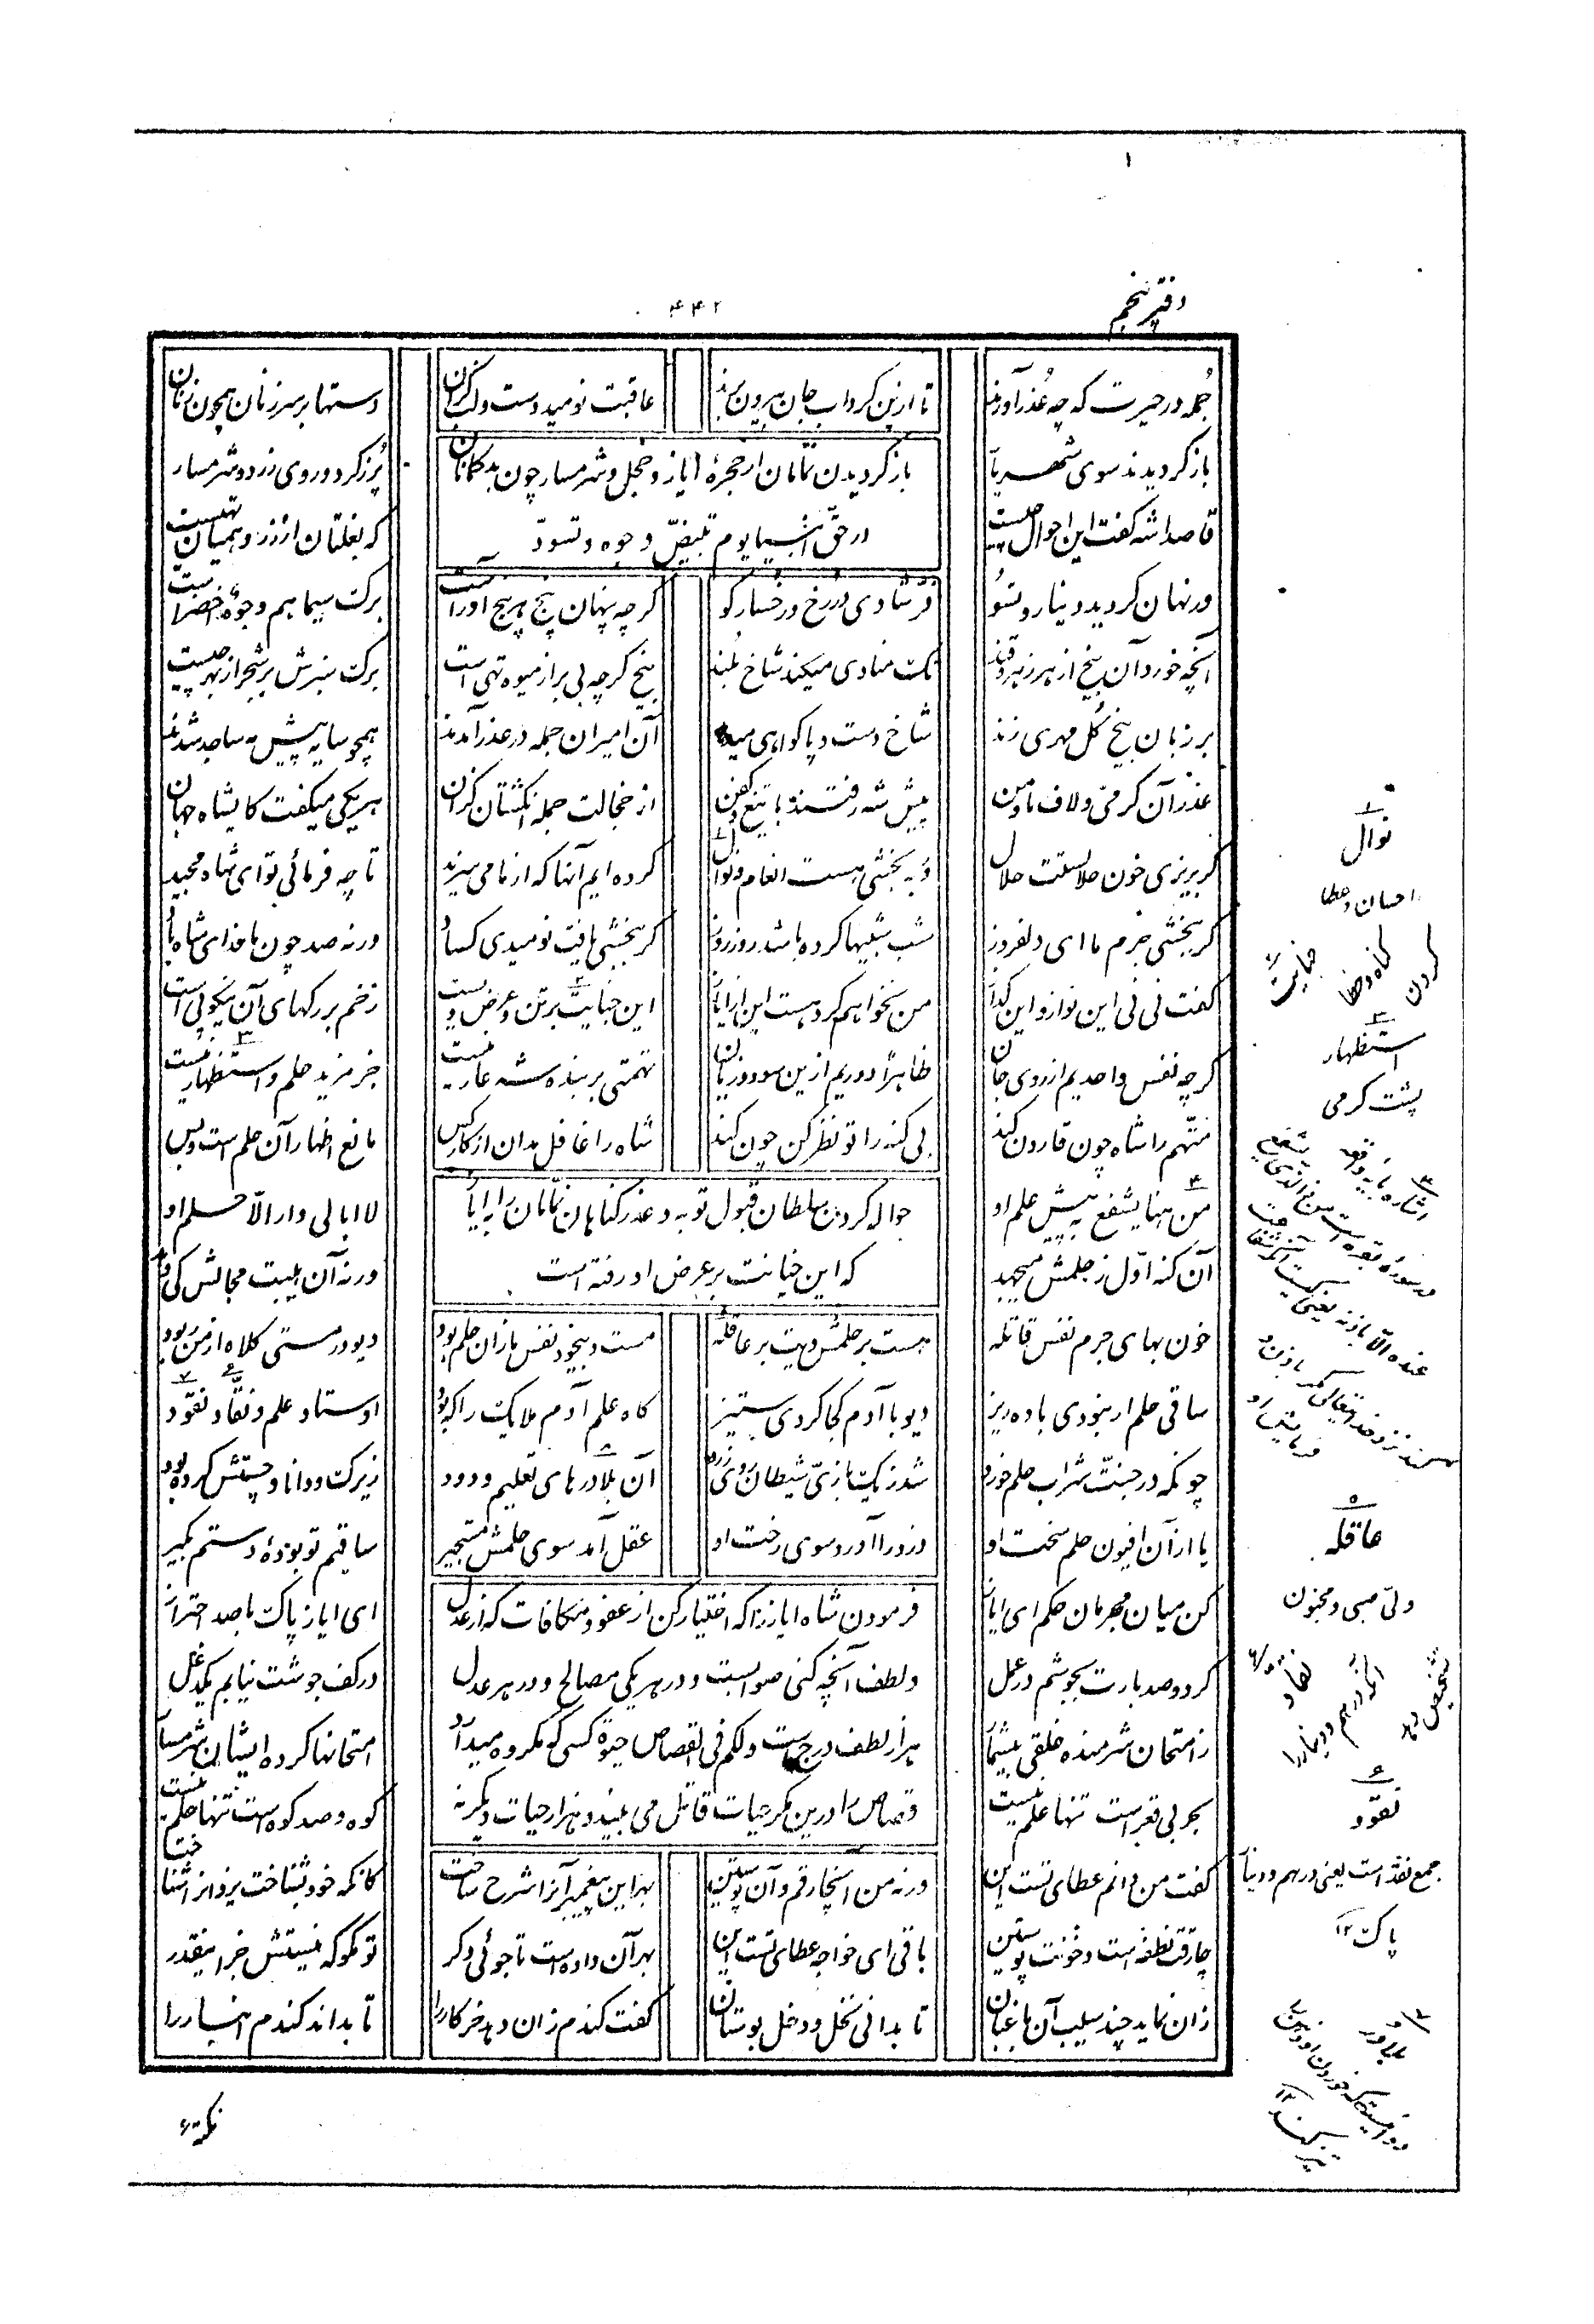 دفتر پنجم
۴۴۲
جمله در حیرت که چه عذر آورند
تا ازین کرداب جان بیرون برند
عاقبت نومید دست و لب گزان
دستها بر سر زنان همچون زنان
باز کردیدن نمامان از حجرهٔ ایاز و خجل و شرمسار چون بدکمانان
در حق انبیا یوم تبیض وجوه و تسود
باز کردیدند سوی شهریار
پر ز کرد و روی زرد و شرمسار
قاصدا شه کفت این احوال چیست
که بغلتان از زر و همیان تهیست
ور نهان کردید دینار و تسو
فر شادی در رخ و رخسار کو
کرچه پنهان بیخ هر بیخ آورست
برک سیماهم وجوه اخضرست
آنچه خورد آن بیخ از هر زهر و قند
نک منادی میکند شاخ بلند
بیخ کرچه بی بر از میوه تهی است
برک سبزش بر شجر از بهر چیست
بر زبان بیخ کل مهری زند
شاخ دست و پا کواهی میدهد
آن امیران جمله در عذر آمدند
همچو سایه پیش مه ساجد شدند
عذر آن کرمی و لاف ما و من
پیش شه رفتند با تیغ و کفن
از خجالت جمله انکشتان کزان
هر یکی میکفت کای شاه جهان
کر بریزی خون حلالستت حلال
ور به بخشی هست انعام و نوال
کرده ایم آنها که از ما می سزید
تا چه فرمائی تو ای شاه مجید
کر ببخشی جرم ما ای دلفروز
شب شبیها کرده باشد روز روز
کر ببخشی یافت نومیدی کساد
ورنه صد چون ما فدای شاه باد
کفت نی نی این نواز و این کداز
من نخواهم کرد هست این ان ایاز
این جنایت بر تن و عرض ویست
زخم بر رکهای آن نیکو پی است
کرچه نفس واحدیم از روی جان
ظاهرا دوریم ازین سود و زیان
تهمتی بر بنده شه عار نیست
جز مزید حلم و استظهار نیست
متهم را شاه چون قارون کند
بی کنه را تو نظر کن چون کند
شاه را غافل مدان از کار کس
مانع اظهار آن حلم است و بس
حواله کردن سلطان قبول توبه و عذر کناهان نمامان را به ایاز
که این خیانت بر عرض او رفته است
من هنا یشفع به پیش علم او
لا ابالی وار الا حلم او
آن کنه اول ز حلمش میجهد
ورنه آن هیبت مجالش کی دهد
خون بهای جرم نفس قاتله
هست بر حلمش دیت بر عاقله
مست و بیخود نفس ما زان حلم بود
دیو در مستی کلاه از من ربود
ساقی حلم ار نبودی باده ریز
دیو با آدم کجا کردی ستیز
کاه علم آدم ملایک را که بود
اوستاد علم و نقاد نقود
چونکه در جنت شراب حلم خورد
شد ز یک بازی شیطان روی زرد
آن بلادرهای تعلیم ودود
زیرک و دانا و چستش کرده بود
باز آن افیون حلم سخت او
دزد را آورد سوی رخت او
عقل آمد سوی حلمش مستجیر
ساقیم تو بودهٔ دستم بکیر
فرمودن شاه ایاز را که اختیار کن از عفو و مکافات که از عدل
و لطف آنچه کنی صوابست و در هر یکی مصالح و در هر عدل
هزار لطف درجست ولکم فی القصاص حیوة کسی کو مکروه میدارد
قصاص را درین یکر حیات قاتل می بیند و هزار حیات دیکر نه
کن میان مجرمان حکم ای ایاز
ای ایاز پاک با صد احتراز
کر دو صد بارت بجوشم در عمل
در کف جوشت نیابم یک دغل
ز امتحان شرمنده خلقی بیشمار
امتحانها کرده ایشان شرمسار
بحر بی قعر است تنها علم نیست
کوه و صد کوه است تنها حلم نیست
کفت من دانم عطای تست این
ورنه من آن چارقم و آن پوستین
بهر این پیغمبر آنرا شرح ساخت
کانکه خود بشناخت یزدان را شناخت
چارقت نطفه است و خونت پوستین
باقی ای خواجه عطای تست این
بهر آن داده است تا جوئی دکر
تو مکو که نیستش جز اینقدر
زان نماید چند سیب آن باغبان
تا بدانی نخل و دخل بوستان
کفت کندم زان دهد خر کار را
تا بداند کندم انبار را
نکته
۱
نوال
احسان و عطا
جنایت
کناه و خطا
کردن
۳
استظهار
پشت کرمی
۵
عاقله
ولی صبی و مجنون
نقاد
آنکه درهم و دینار را
تشخیص دهد
نقود
جمع نقد است یعنی درهم و دینار
پاک ۱۲
بلادر